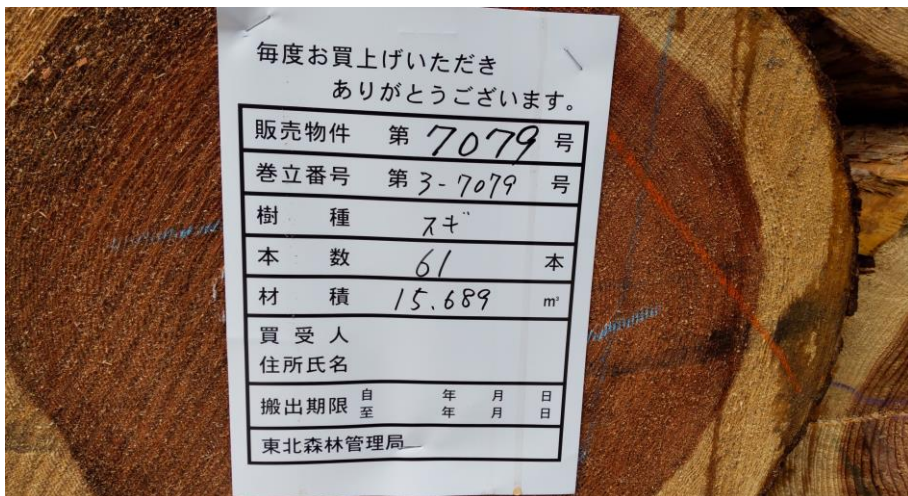 毎度お買上げいただき
ありがとうございます。
販売物件 第 7079 号
巻立番号 第 3-7079 号
樹種 スギ
本数 61 本
材積 15.689 m³
買受人
住所氏名
搬出期限 自 年 月 日
至 年 月 日
東北森林管理局